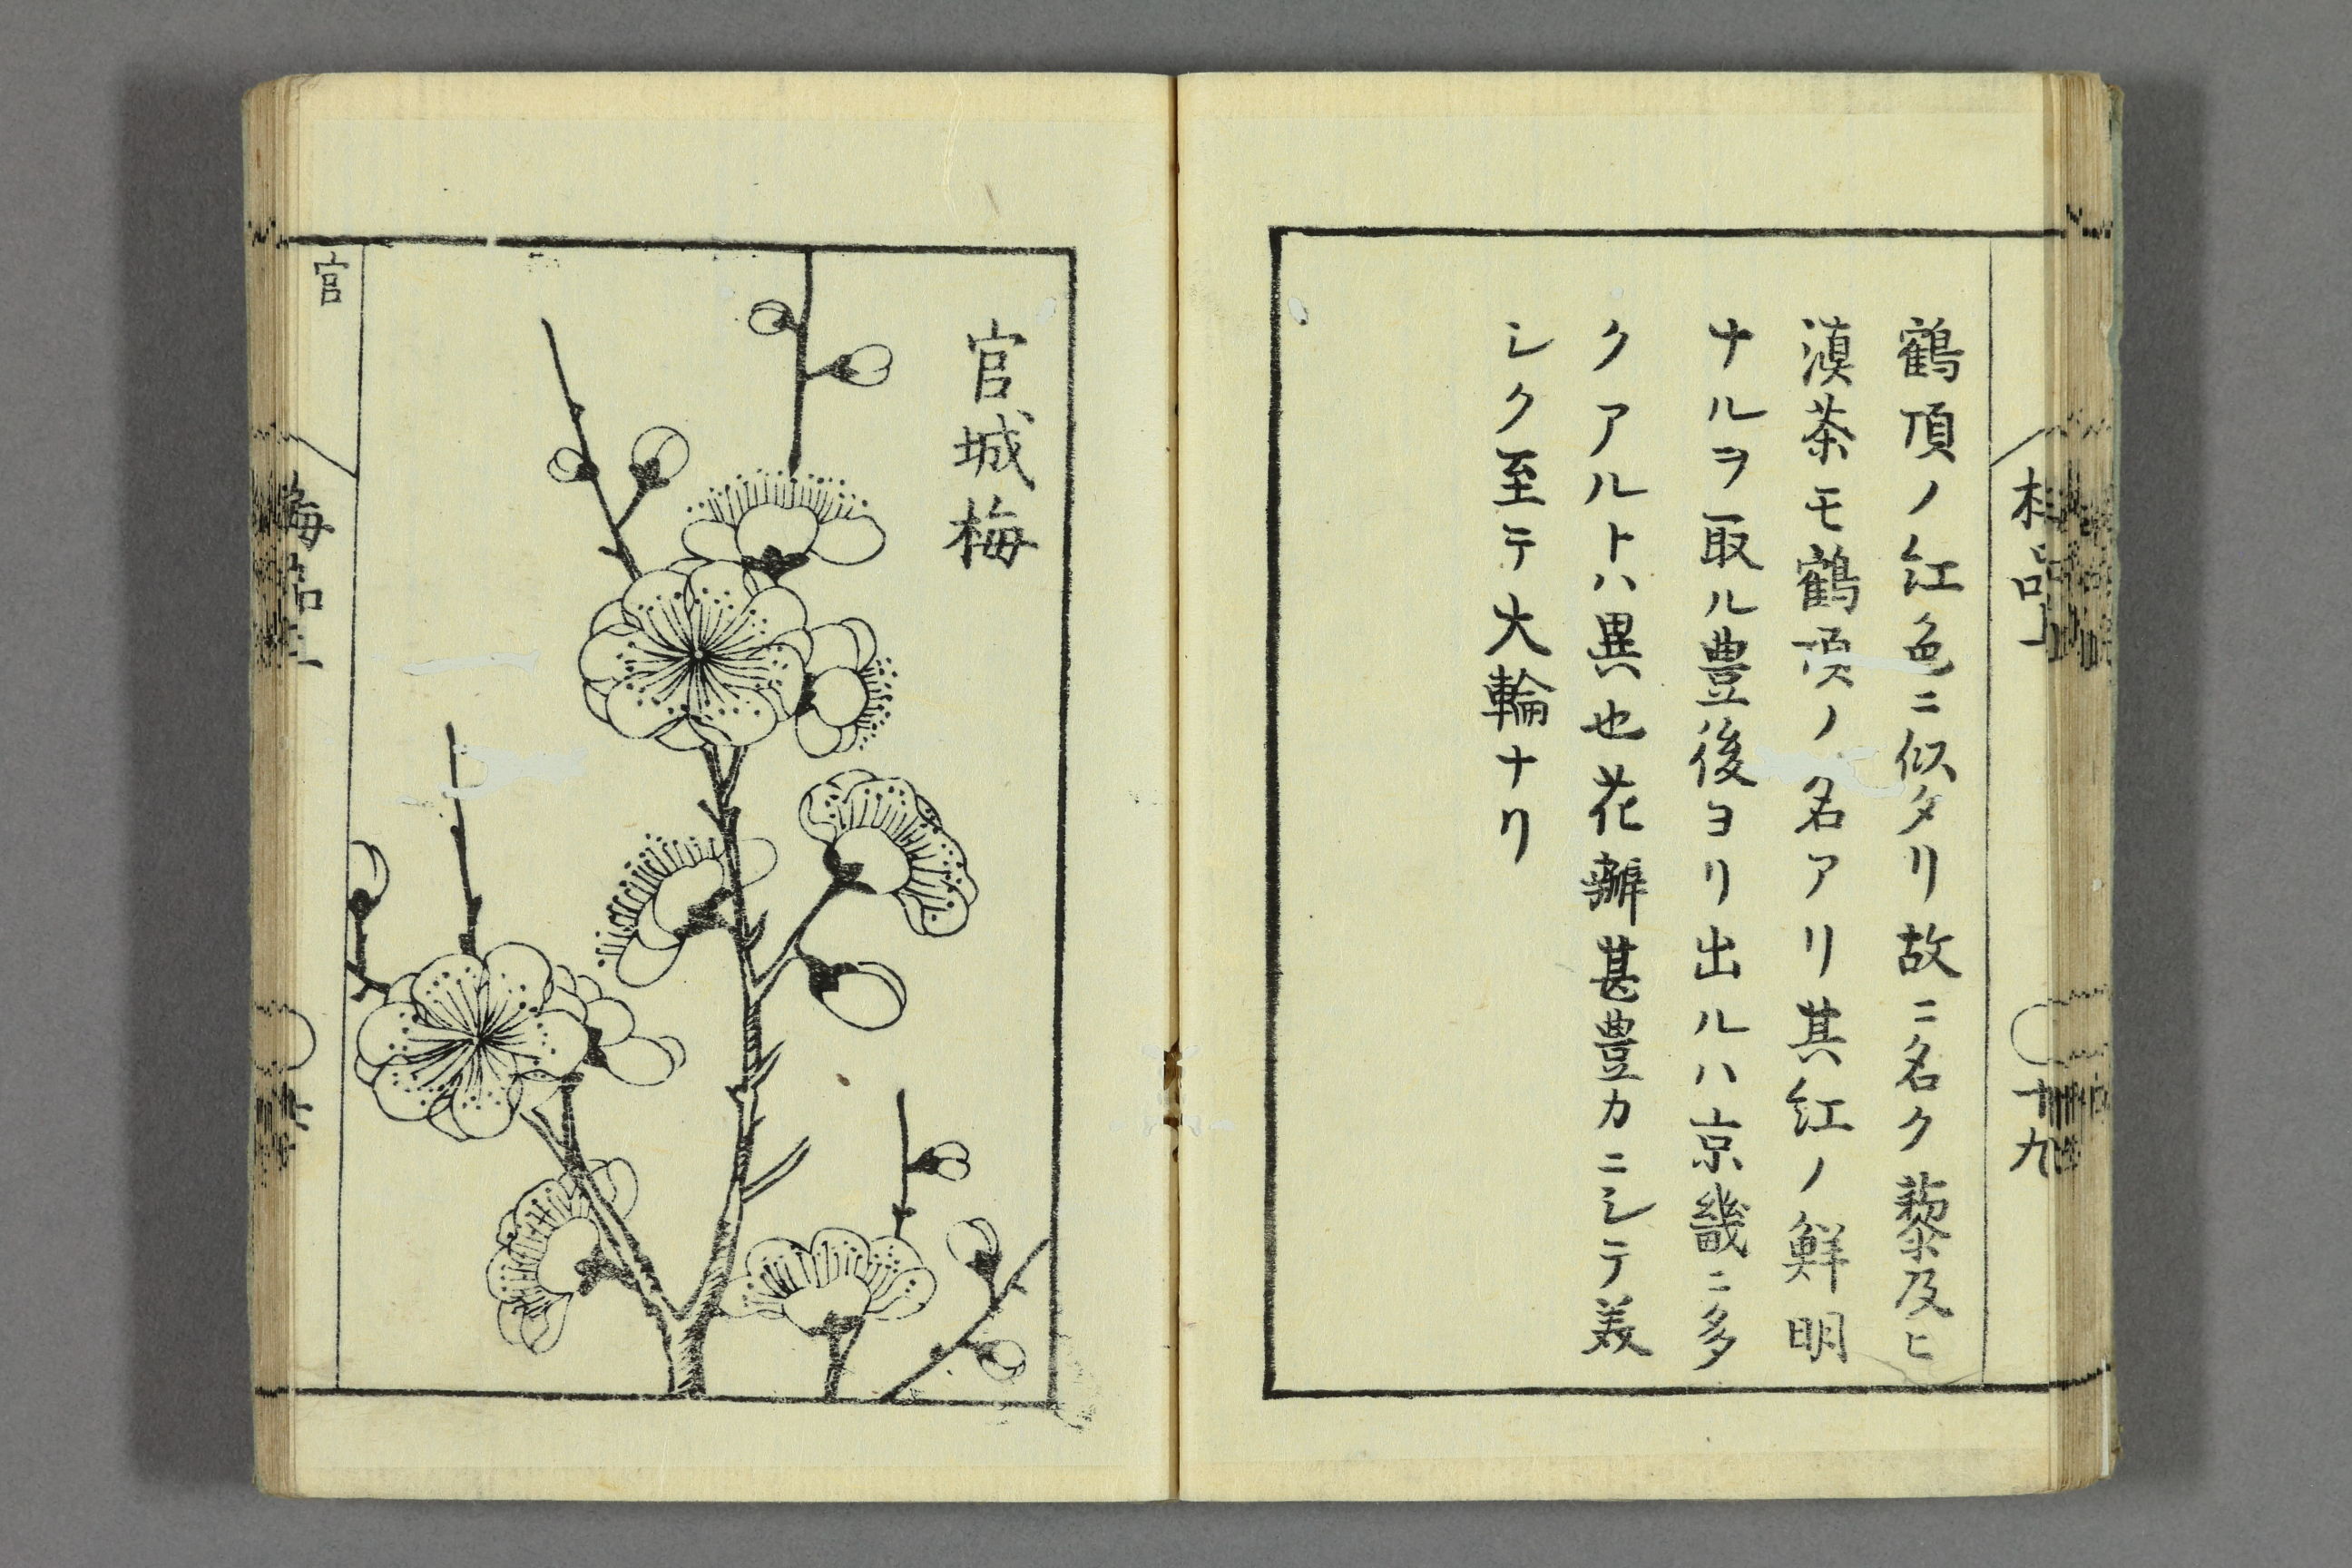 鶴頂ノ紅色ニ似タリ故ニ名ク藜及ヒ
滇茶モ鶴頂ノ名アリ其紅ノ鮮明
ナルヲ取ル豊後ヨリ出ルハ京畿ニ多
クアルトハ異也花瓣甚豊カニシテ美
シク至テ大輪ナリ
十九
官城梅
官